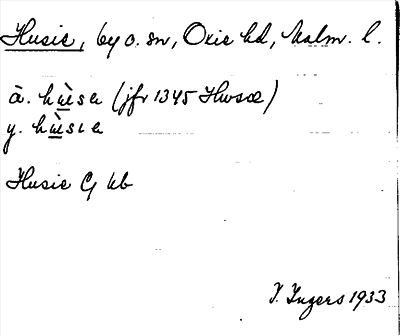 Husie, by o. sn, Oxie hd, Malm. l.
ä. hùsa (jfr 1345 Hwsæ)
y. hùsıa
Husie Gj kb
I. Ingers 1933